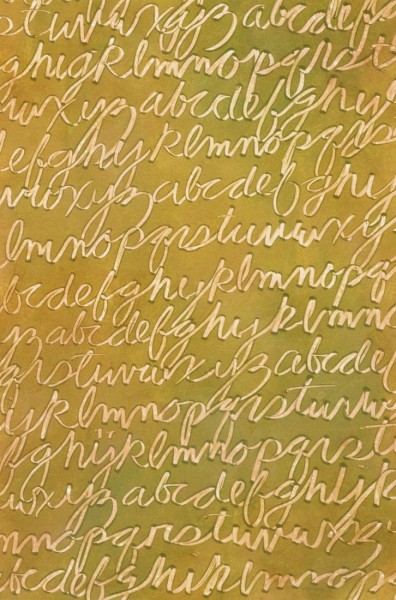 stuvwxyzabcdef
ghijklmnopqrst
tuvwxyzabcdefghi
defghijklmnopqrs
vwxyzabcdefghij
lmnopqrstuvwxyz
bcdefghijklmnopq
yzabcdefghijklmn
qrstuvwxyzabcdef
ijklmnopqrstuvw
fghijklmnopqrst
uvwxyzabcdefghijk
mnopqrstuvwxyz
abcdefghijklmnop